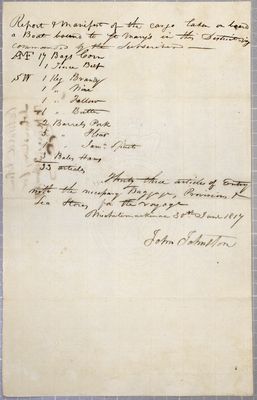 Report & Manifest of the cargo taken on board
a Boat bound to St Marys in the District
commanded by the Subscriber
AF 17 Bags Corn
1 Beef
SW 1 Keg Brandy
1 " Wine
1 " Tallow
1 " Butter
2 Barrels Pork
5 " Flour
" Spirits
3 Bales Hams
33 articles
Thirty three articles of Entry
with the necessary Baggage, Provisions &
Sea Stores for the voyage
Michilimackinac 30th June 1817
John Johnston